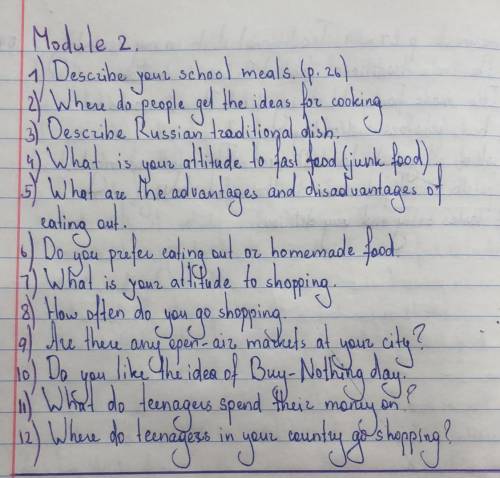 Module 2.
1) Describe your school meals. (p. 26)
2) Where do people get the ideas for cooking
3) Describe Russian traditional dish.
4) What is your attitude to fast food (junk food)
5) What are the advantages and disadvantages of
eating out.
6) Do you prefer eating out or homemade food.
7) What is your attitude to shopping.
8) How often do you go shopping.
9) Are there any open-air markets at your city?
10) Do you like the idea of Buy-Nothing day.
11) What do teenagers spend their money on?
12) Where do teenagers in your country go shopping?